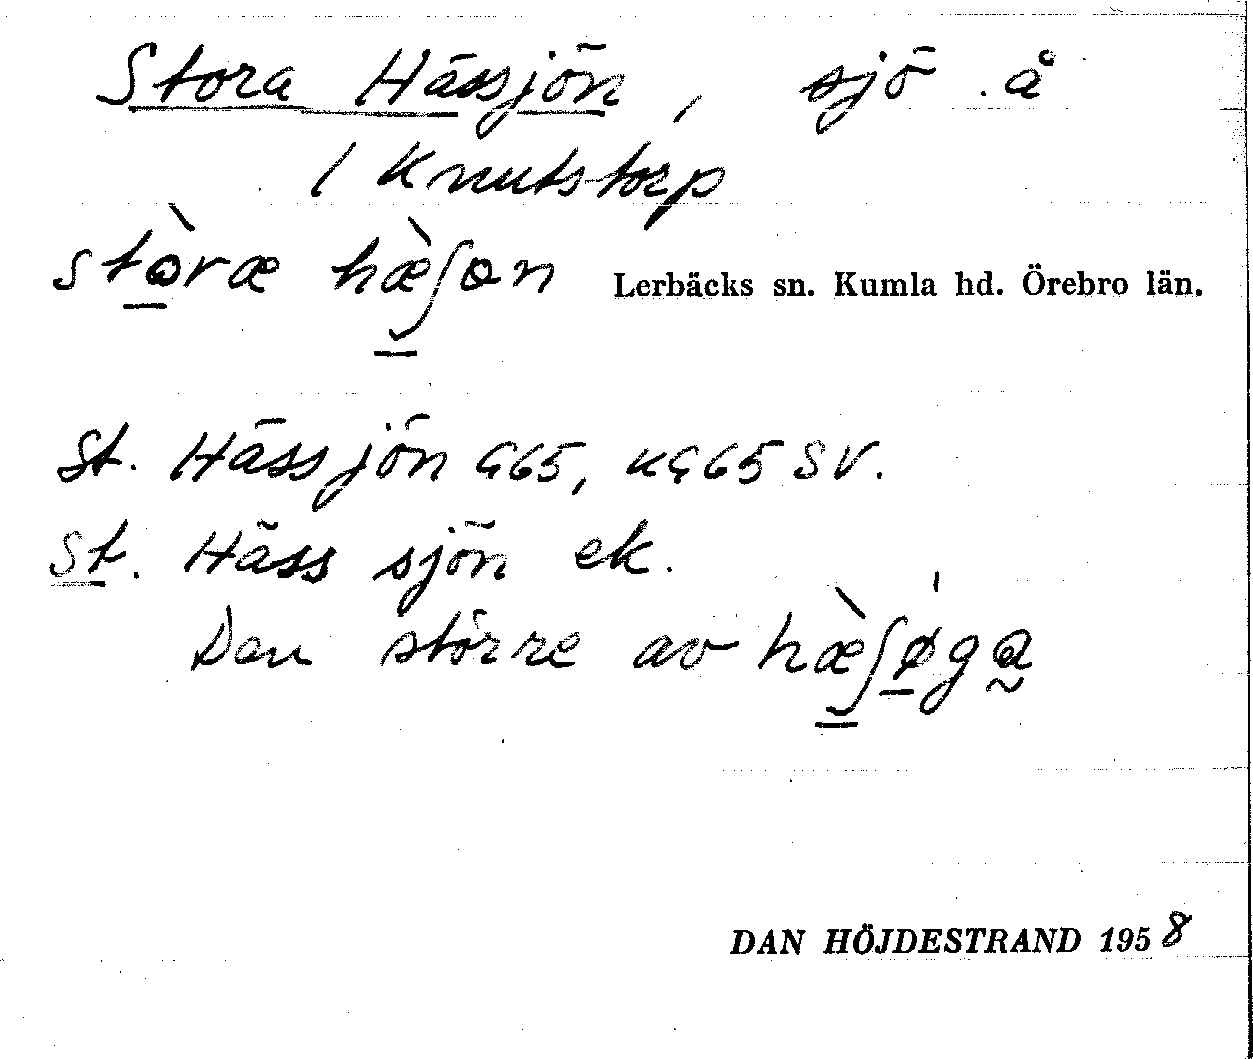 Stora Hässjön, sjö å
1 Knutstorp
stòræ hæ̀ʃɷn Lerbäcks sn. Kumla hd. Örebro län.
St. Hässjön G65, KG65 SV.
St. Häss sjön ek.
Den större av hæ̀ʃø̍ga
DAN HÖJDESTRAND 1958